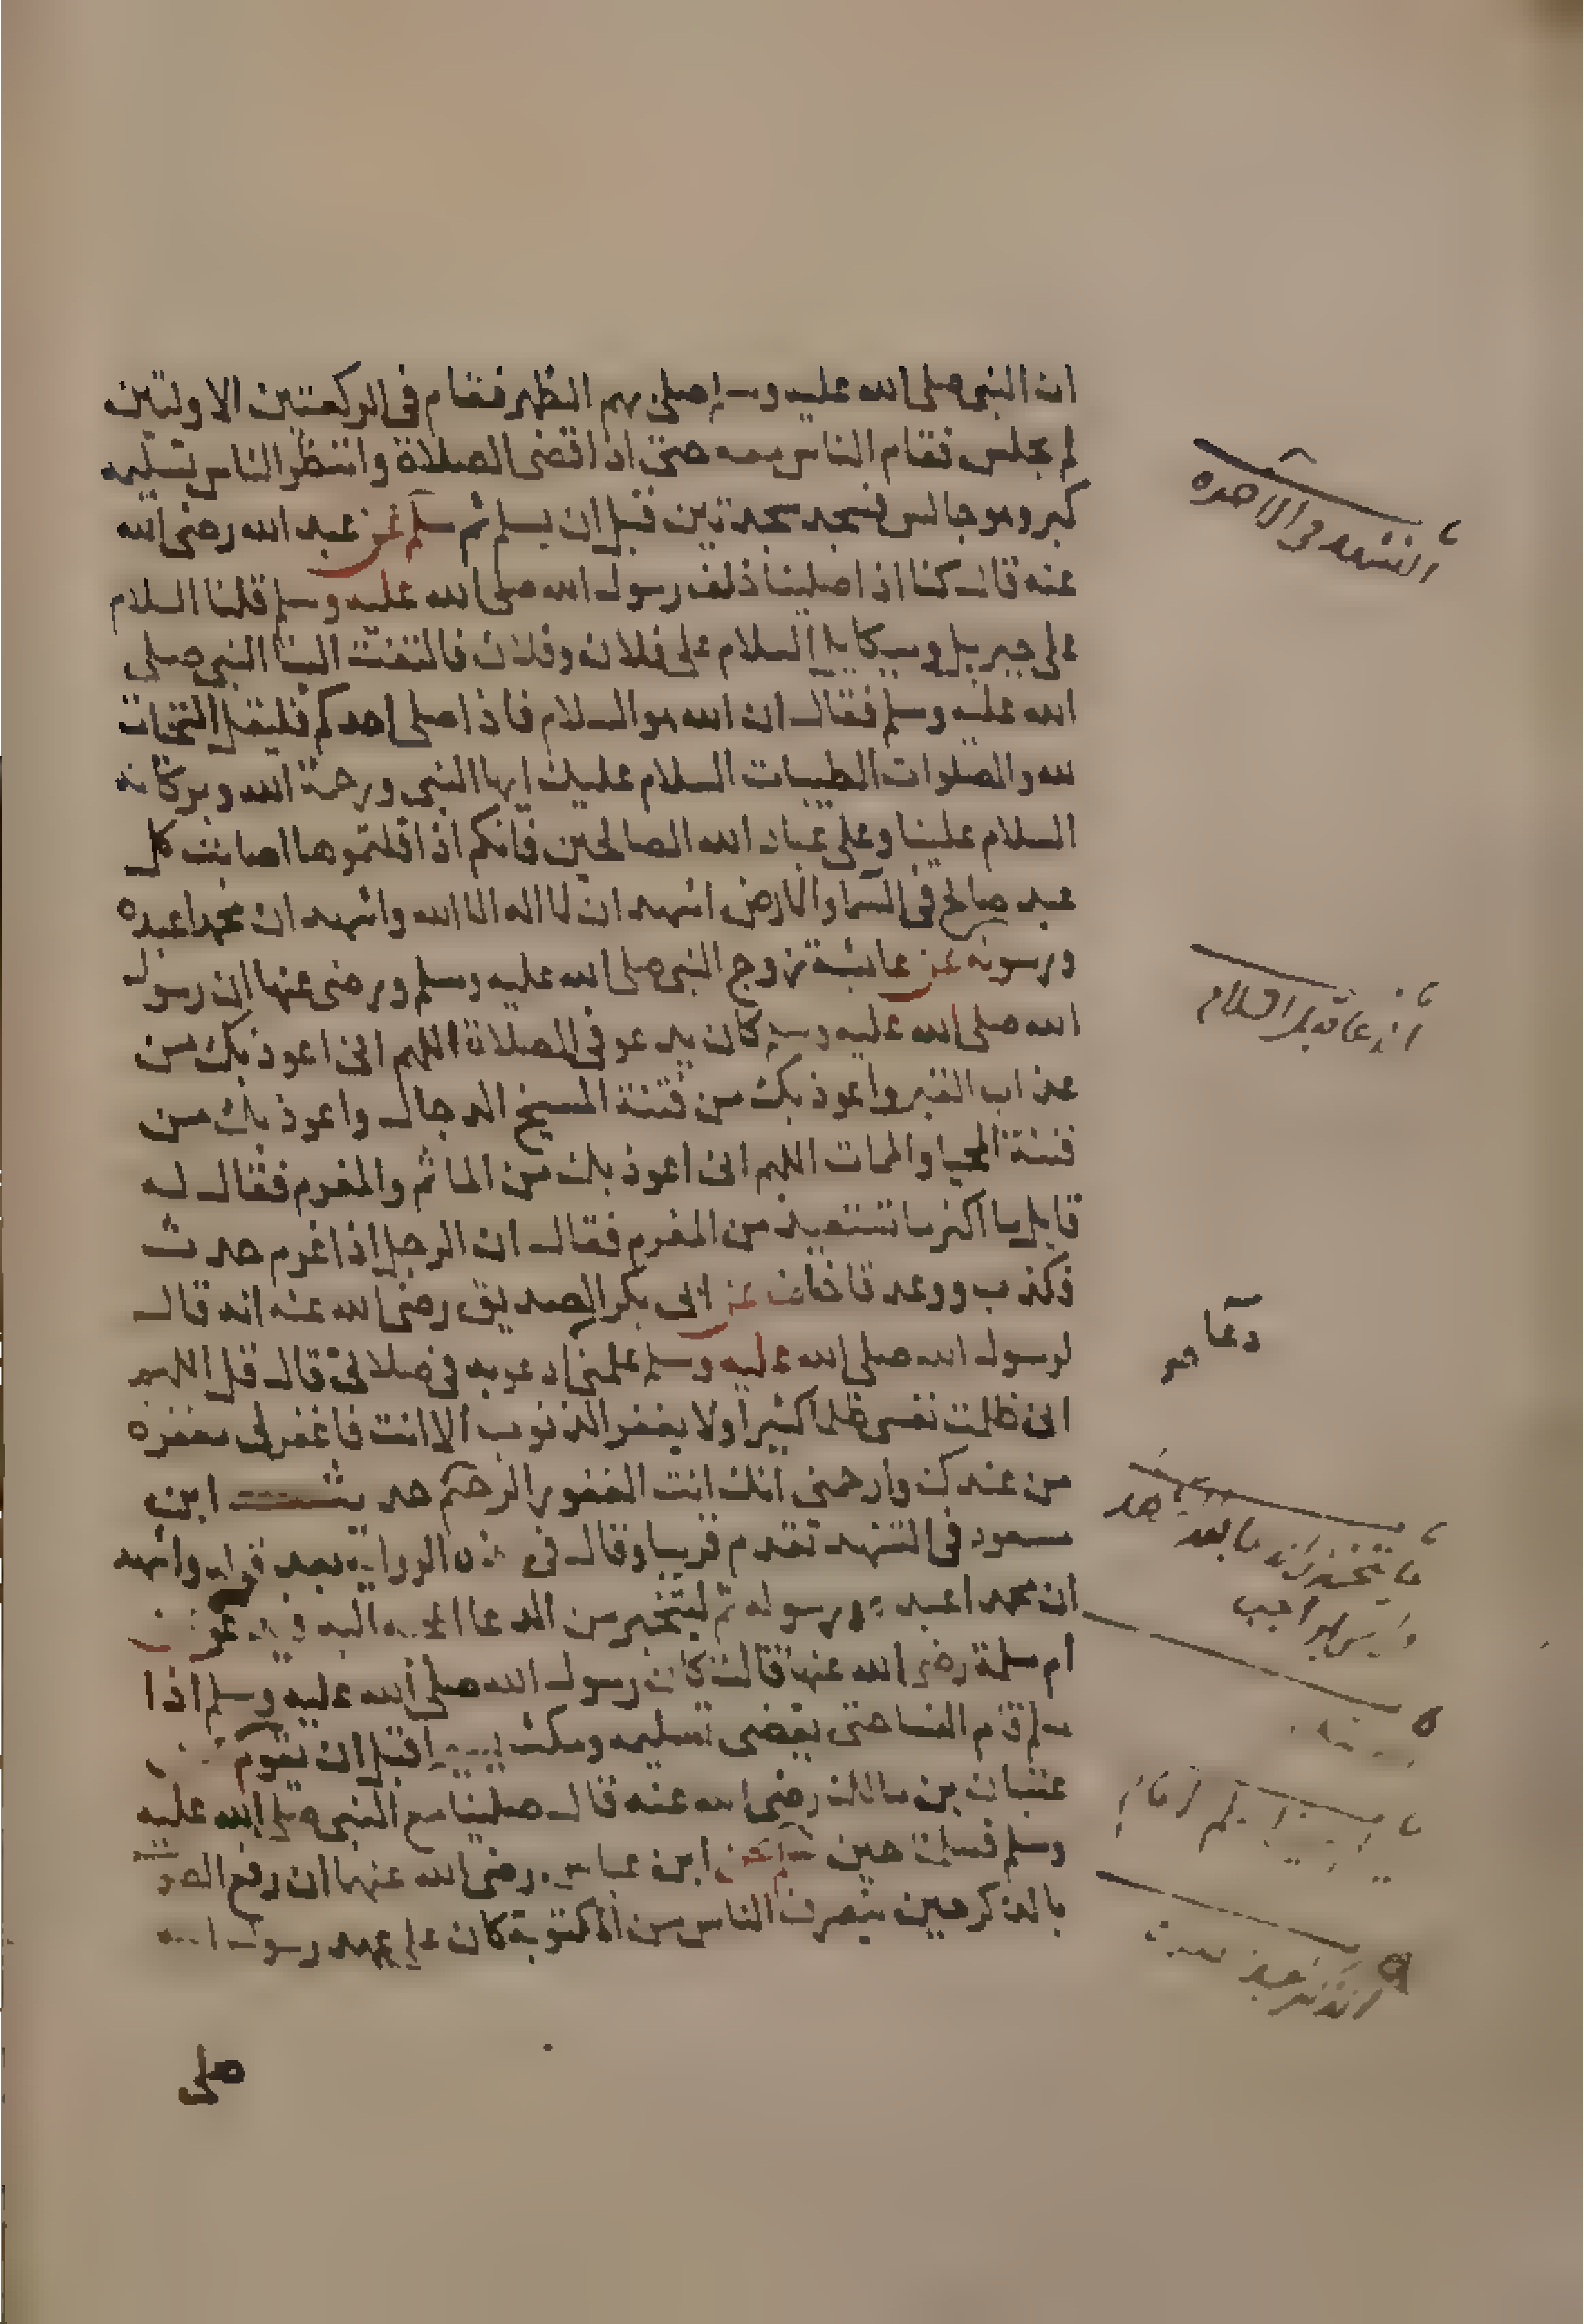 ان النبي صلى الله عليه وسلم صلى بهم الظهر فقام في الركعتين الاوليين
لم يجلس فقام الناس معه حتى اذا قضى الصلاة وانتظر الناس تسليمه
كبر وهو جالس فسجد سجدتين قبل ان يسلم ثم سلم عن عبد الله رضى الله
عنه قال كنا اذا صلينا خلف رسول الله صلى الله عليه وسلم قلنا السلام
على جبريل وميكايل السلام على فلان وفلان فالتفت الينا النبي صلى
الله عليه وسلم فقال ان الله هو السلام فاذا صلى احدكم فليقل التحيات
لله والصلوات الطيبات السلام عليك ايها النبي ورحمة الله وبركاته
السلام علينا وعلى عباد الله الصالحين فانكم اذا قلتموها اصابت كل
عبد صالح في السما والارض اشهد ان لا اله الا الله واشهد ان محمدا عبده
ورسوله عن عائشة زوج النبي صلى الله عليه وسلم ورضى عنها ان رسول
الله صلى الله عليه وسلم كان يدعو في الصلاة اللهم انى اعوذ بك من
عذاب القبر واعوذ بك من فتنة المسيح الدجال واعوذ بك من
فتنة المحيا والممات اللهم انى اعوذ بك من الماثم والمغرم فقال له
قايل ما اكثر ما تستعيذ من المغرم فقال ان الرجل اذا غرم حدث
فكذب ووعد فاخلف عن ابى بكر الصديق رضى الله عنه انه قال
لرسول الله صلى الله عليه وسلم علمنى ادعو به في صلاتى قال قل اللهم
انى ظلمت نفسى ظلما كثيرا ولا يغفر الذنوب الا انت فاغفر لى مغفرة
من عندك وارحمنى انك انت الغفور الرحيم حديث ابن
مسعود في التشهد تقدم قريبا وقال في هذه الرواية بعد قوله واشهد
ان محمدا عبده ورسوله ثم ليتخير من الدعا اعجبه اليه فيدعو عن
ام سلمة رضى الله عنها قالت كان رسول الله صلى الله عليه وسلم اذا
سلم قام النسا حتى يقضى تسليمه ومكث يسيرا قبل ان يقوم عن
عتبان بن مالك رضى الله عنه قال صلينا مع النبي صلى الله عليه
وسلم فسلمنا حين سلم عن ابن عباس رضى الله عنهما ان رفع الصو
بالذكر حين ينصرف الناس من المكتوبة كان على عهد رسول الله
صلى
التشهد في الاخره
الدعا قبل السلام
دعا هو
ما يتخير من الدعا بعد التشهد
وليس بواجب